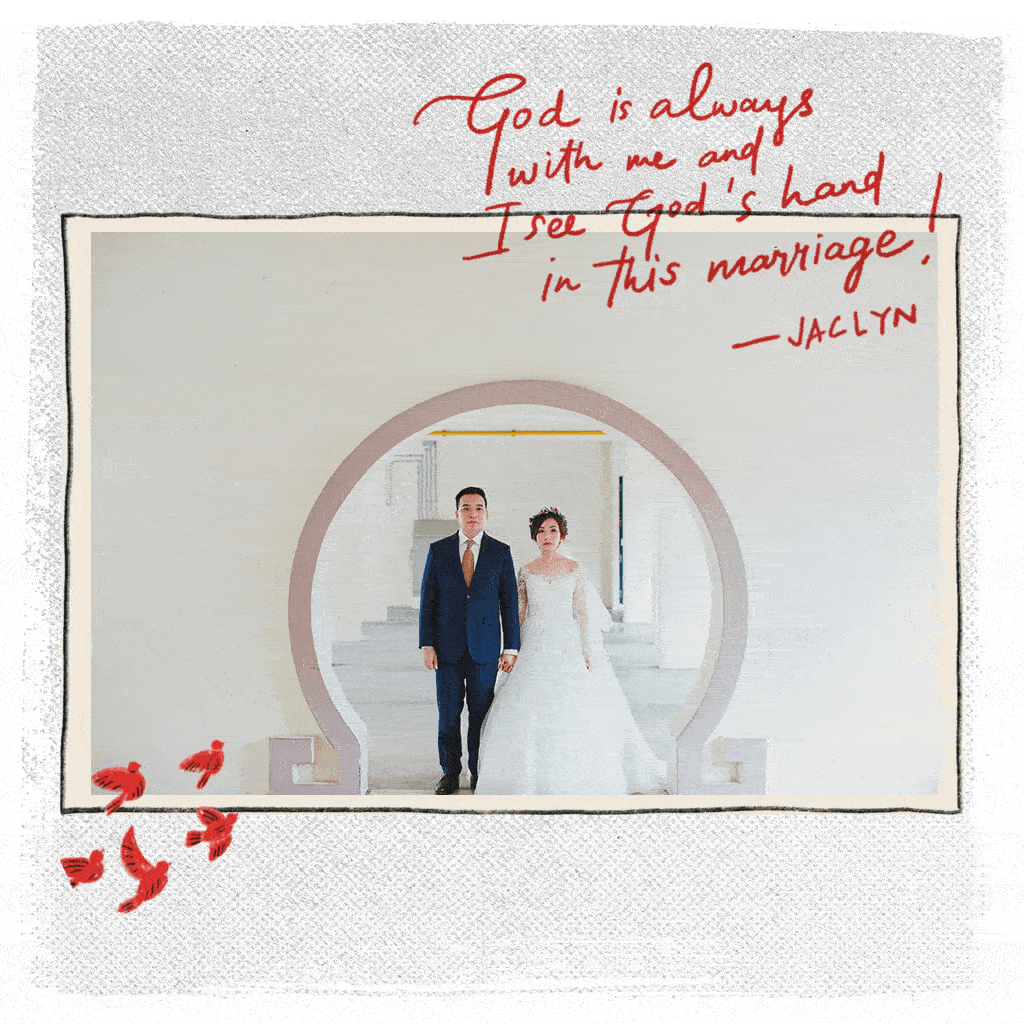 God is always
with me and
I see God's hand
in this marriage!
—JACLYN